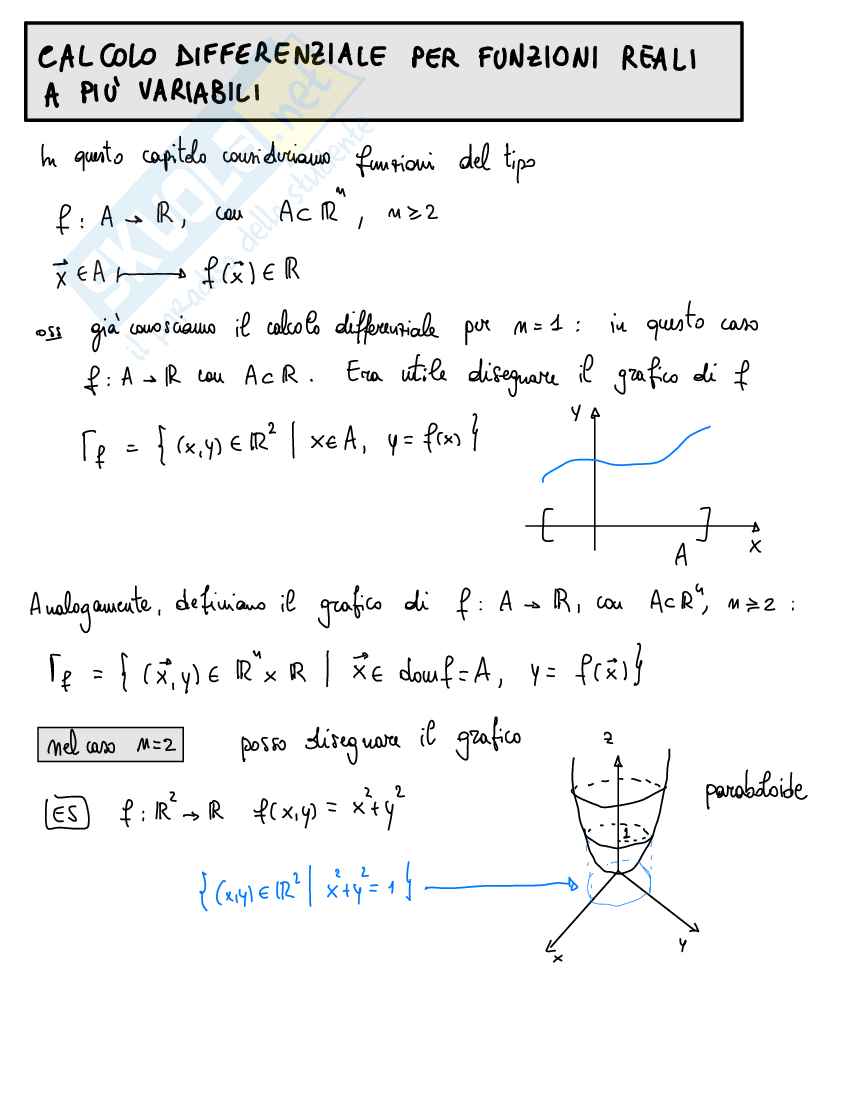 CALCOLO DIFFERENZIALE PER FUNZIONI REALI
A PIÙ VARIABILI
SKUOLA.net
il paradiso dello studente
In questo capitolo consideriamo funzioni del tipo
f : A → ℝ, con A⊂ℝⁿ, n≥2
x⃗ ∈ A ⟼ f(x⃗) ∈ ℝ
oss già conosciamo il calcolo differenziale per n=1 : in questo caso
f : A → ℝ con A⊂ℝ. Era utile disegnare il grafico di f
Γf = { (x,y) ∈ ℝ² | x∈A, y = f(x) }
y
A
x
Analogamente, definiamo il grafico di f : A → ℝ, con A⊂ℝⁿ, n≥2 :
Γf = { (x⃗,y) ∈ ℝⁿ × ℝ | x⃗ ∈ domf = A, y = f(x⃗) }
nel caso n=2 posso disegnare il grafico
z
paraboloide
ES f : ℝ² → ℝ f(x,y) = x²+y²
1
{ (x,y) ∈ ℝ² | x²+y² = 1 }
x
y